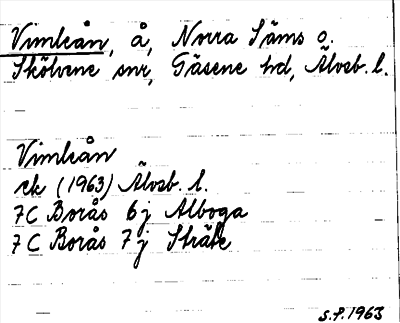 Vimleån, å, Norra Säms o.
Skölvene snr, Gäsene hd, Älvsb. l.
Vimleån
ek (1963) Älvsb. l.
7C Borås 6j Alboga
7C Borås 7j Stråle
S.F. 1963